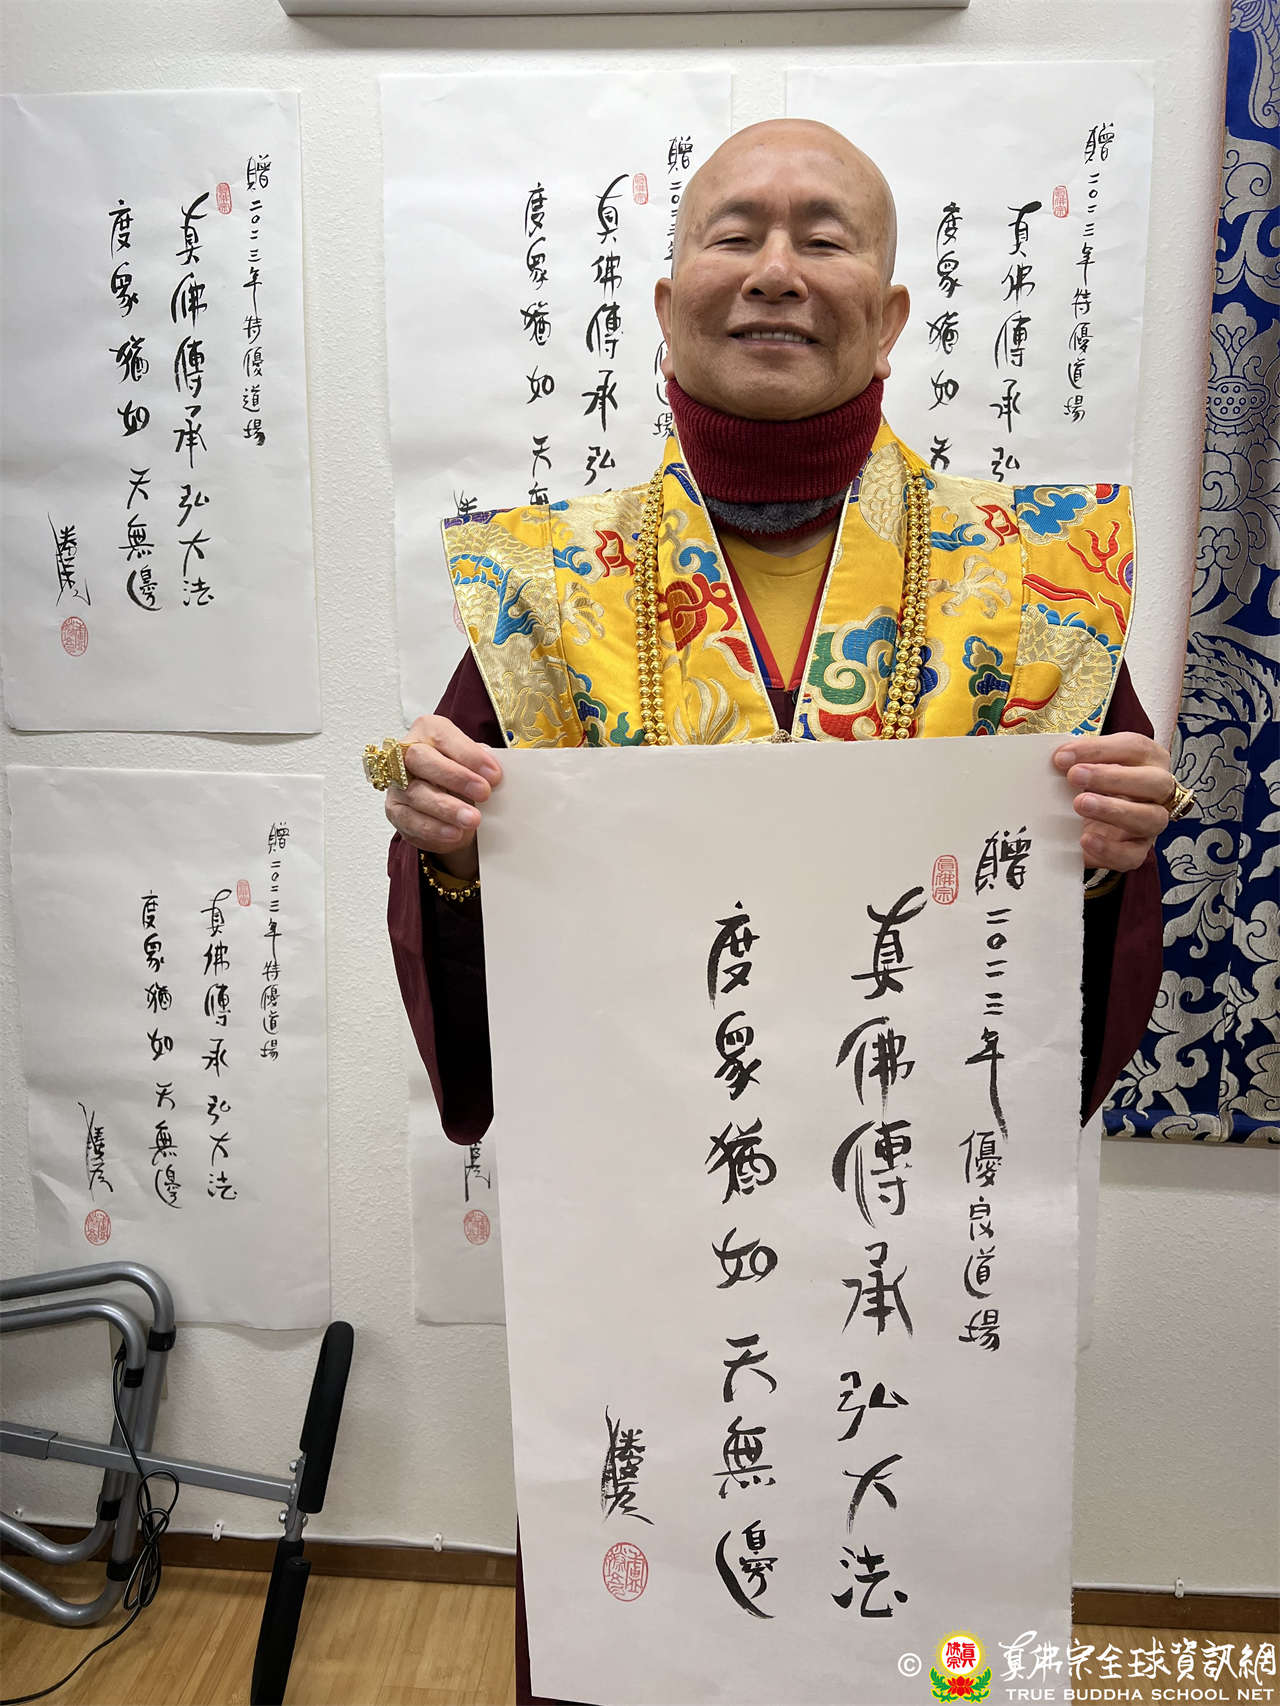 贈二〇二三年特優道場
真佛傳承弘大法
度眾猶如天無邊
贈二〇二三
真佛傳承弘
度眾猶如天無
贈二〇二三年特優道場
真佛傳承弘
度眾猶如天
贈二〇二三年特優道場
真佛傳承弘大法
度眾猶如天無邊
贈二〇二三年優良道場
真佛宗
真佛傳承弘大法
度眾猶如天無邊
© 真佛宗全球資訊網
TRUE BUDDHA SCHOOL NET